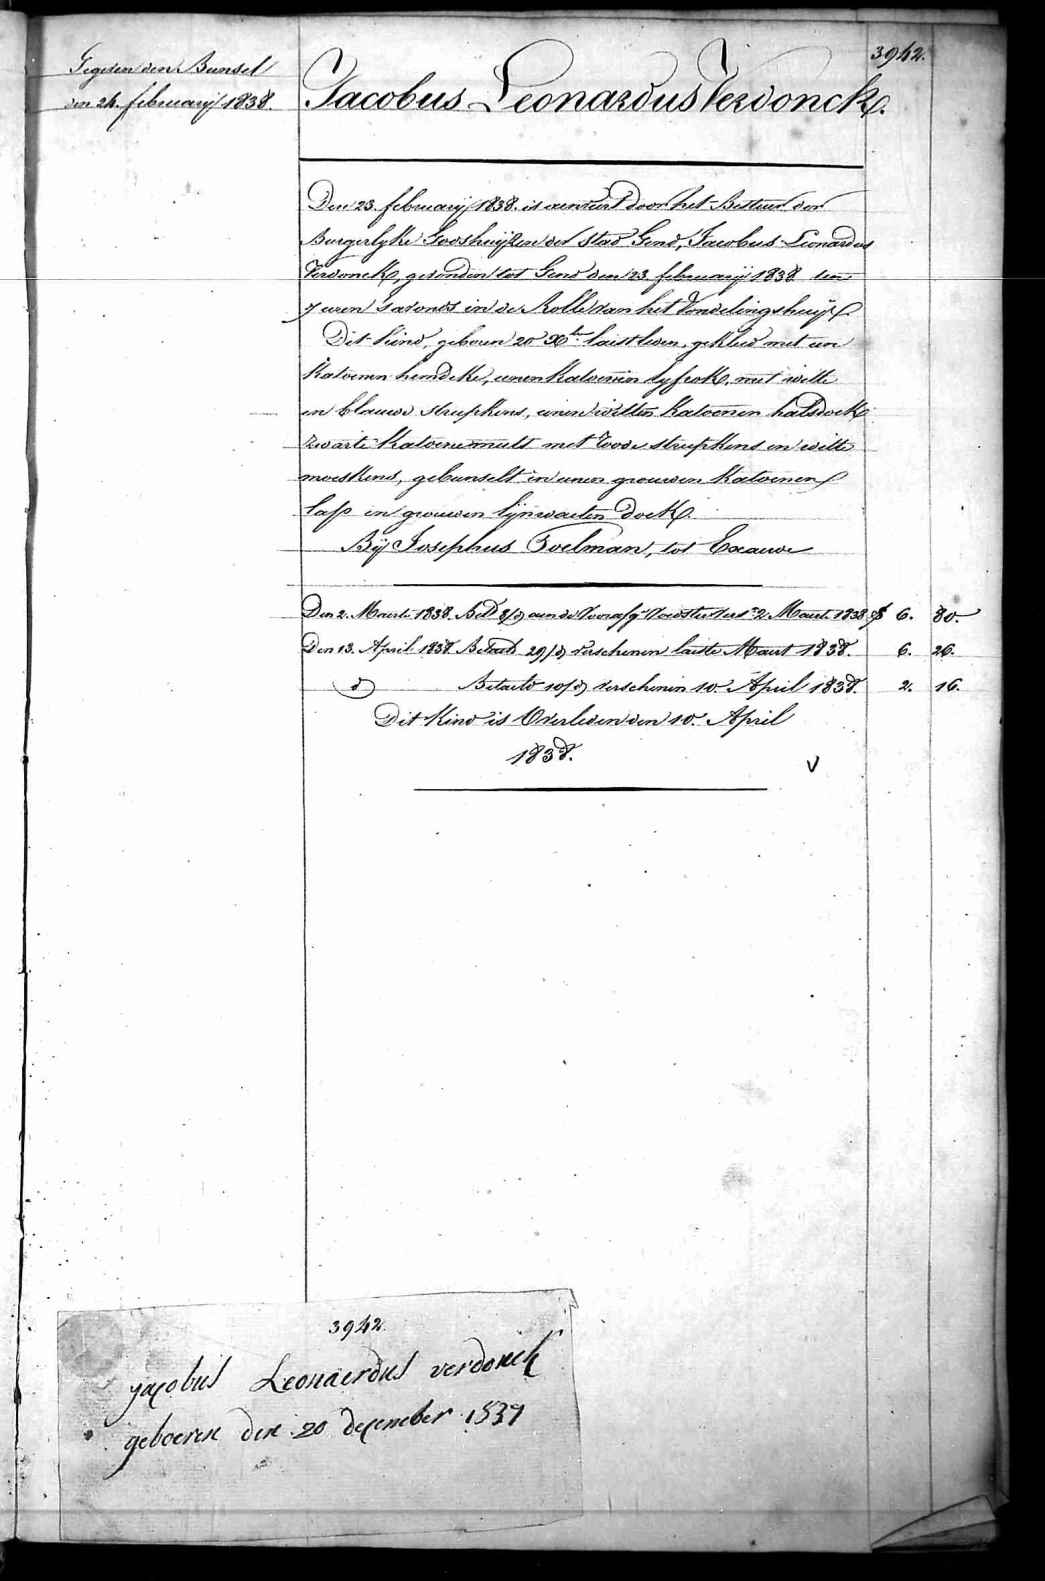 3942.
Gegeven den Bunsel
den 24. februarij 1838.
Jacobus Leonardus Verdonck.
Den 23. februarij 1838. is aenveert door het Bestuur der
Burgerlyke Godshuijzen der stad Gend, Jacobus Leonardus
Verdonck, gevonden tot Gend den 23. februarij 1838 ten
7 uren s'avonds in de Rolle van het Vondelingshuijs
Dit kind, geboren 20 Xber laistleden, gekleed met een
katoenen hemdeke, eenen katoenen lyfrok, met witte
en blauwe streepkens, eenen witten katoenen halsdoek
zwarte katoene muts met roode streepkens en witte
moeskens, gebunselt in eenen grouwen katoenen
lap en grouwen lijnwaeten doek.
Bij Josephus Poelman, tot Exaerde
Den 2. Maerte 1838. Betd 8/d aen de Voorafge Voedster Verst 2 Maert 1838 f 6. 80.
Den 13. April 1838 Betaeld 29/d verschenen laiste Maert 1838. 6. 26.
d Betaeld 10/d verschenen 10 April 1838. 2. 16.
Dit Kind is Overleden den 10. April
1838.
V
3942
jacobus Leonaerdus verdonck
geboeren den 20 decemeber 1837